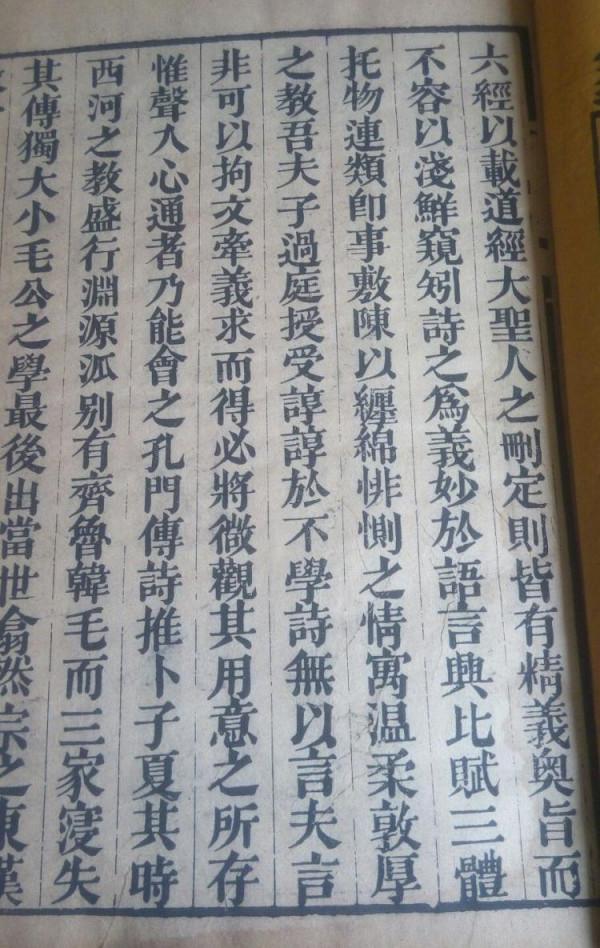 六經以載道經大聖人之刪定則皆有精義奧旨而
不容以淺鮮窺矧詩之為義妙於語言興比賦三體
托物連類卽事敷陳以纏綿悱惻之情寓温柔敦厚
之教吾夫子過庭授受諄諄於不學詩無以言夫言
非可以拘文牽義求而得必將微觀其用意之所存
惟聲入心通者乃能會之孔門傳詩推卜子夏其時
西河之教盛行淵源派别有齊魯韓毛而三家寖失
其傳獨大小毛公之學最後出當世翕然宗之東漢